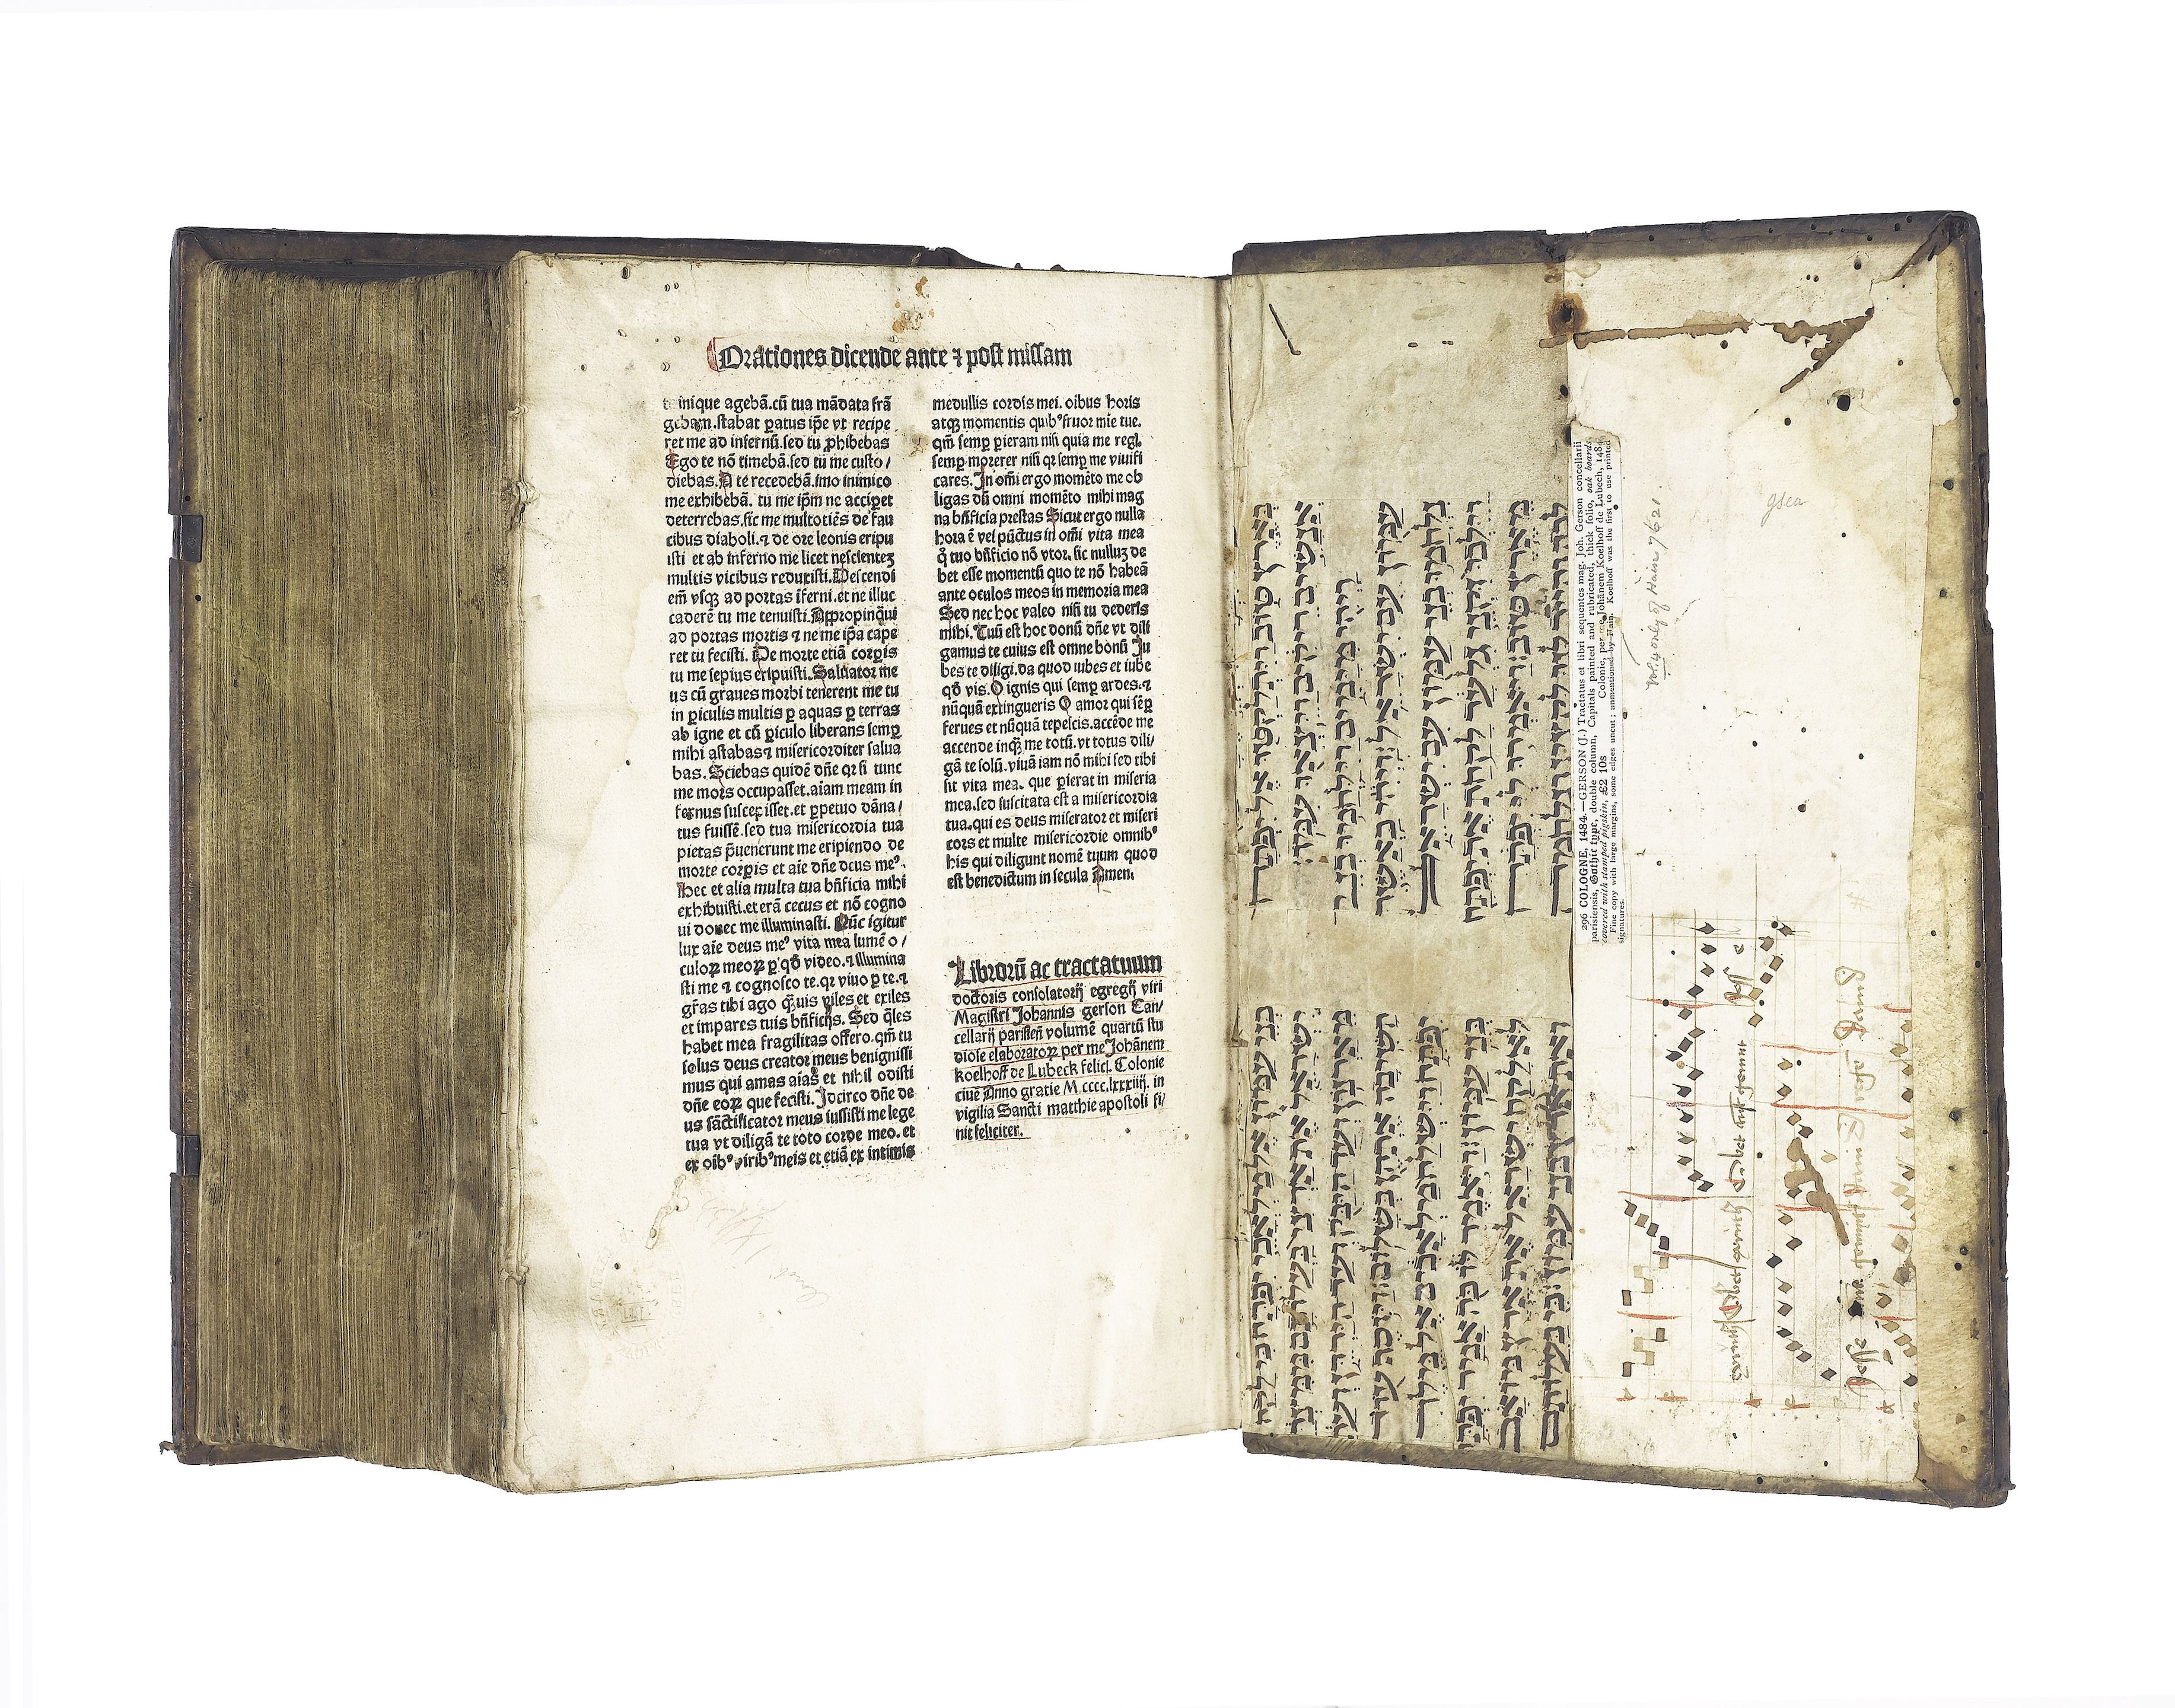 Orationes dicende ante ⁊ post missam
inique agebā.cū tua mādata frā
gebam.stabat ꝑatus ip̄e vt recipe
ret me ad infernū.sed tu ꝓhibebas
Ego te nō timebā.sed tu me custo/
diebas.A te recedebā.imo inimico
me exhibebā. tu me ip̄m ne acciꝑet
deterrebas.sic me multotiēs de fau
cibus diaboli.⁊ de ore leonis eripu
isti et ab inferno me licet nescientez
multis vicibus reduxisti.Descendi
em̄ vsqꝫ ad portas īferni.et ne illuc
caderē tu me tenuisti.Appropinq̄ui
ad portas mortis ⁊ ne me ip̄a cape
ret tu fecisti. De morte etiā corꝑis
tu me sepius eripuisti.Saluator me
us cū graues morbi tenerent me tu
in ꝑiculis multis ꝑ aquas ꝑ terras
ab igne et cū ꝑiculo liberans semꝑ
mihi astabas⁊ misericorditer salua
bas. Sciebas quidē dn̄e qꝛ si tunc
me mors occupasset.aīam meam in
fernus suscepisset.et ꝑpetuo dāna/
tus fuissē.sed tua misericordia tua
pietas p̄uenerunt me eripiendo de
morte corꝑis et aīe dn̄e deus meꝰ
Hec et alia multa tua bn̄ficia mihi
exhibuisti.et erā cecus et nō cogno
ui donec me illuminasti. Nūc igitur
lux aīe deus meꝰ vita mea lumē o/
culoꝝ meoꝝ ꝑ qd̄ video.⁊ illumina
sti me ⁊ cognosco te.qꝛ viuo ꝑ te.⁊
gr̄as tibi ago q̄uis viles et exiles
et impares tuis bn̄ficijs. Sed q̄les
habet mea fragilitas offero.qm̄ tu
solus deus creator meus benignissi
mus qui amas aīas et nihil odisti
dn̄e eoꝝ que fecisti. Idcirco dn̄e de
us sāctificator meus iussisti me lege
tua vt diligā te toto corde meo. et
ex oībꝰ viribꝰ meis et etiā ex intimis
medullis cordis mei. oībus horis
atqꝫ momentis quibꝰ fruor mīe tue.
qm̄ semꝑ ꝑieram nisi quia me regl.
semꝑ morerer nisi qꝛ semꝑ me viuifi
cares. In om̄i ergo momēto me ob
ligas dū omni momēto mihi mag
na bn̄ficia prestas Sicut ergo nulla
hora ē vel pūctus in om̄i vita mea
q̄ tuo bn̄ficio nō vtor. sic nulluz de
bet esse momentū quo te nō habeā
ante oculos meos in memoria mea
Sed nec hoc valeo nisi tu dederis
mihi. Tuū est hoc donū dn̄e vt dili
gamus te cuius est omne bonū Iu
bes te diligi.da quod iubes et iube
qd̄ vis. O ignis qui semꝑ ardes.⁊
nūquā extingueris O amor qui sēꝑ
ferues et nūquā tepescis.accēde me
accende inqꝫ me totū.vt totus dili/
gā te solū.viuā iam nō mihi sed tibi
sit vita mea. que ꝑierat in miseria
mea.sed suscitata est a misericordia
tua.qui es deus miserator et miseri
cors et multe misericordie omnibꝰ
his qui diligunt nomē tuum quod
est benedictum in secula Amen.
Librorū ac tractatuum
doctoris consolatorij egregij viri
Magistri Johannis gerson Can/
cellarij parisieñ volumē quartū stu
diose elaboratoꝝ per me Johānem
koelhoff de Lubeck felicī. Colonie
ciuē Anno gratie M.cccc.lxxxiiij. in
vigilia Sancti matthie apostoli fi/
nit feliciter.
בארץ טוב ויתלקטו אל יפתח
אנשים ריקים ויצאו עמו
ויהי מימים וילחמו בני
עמון עם ישראל ויהי כאשר
נלחמו בני עמון עם ישראל
וילכו זקני גלעד לקחת את יפתח
מארץ טוב ויאמרו ליפתח
לכה והייתה לנו לקצין ונלחמה
בני עמון אל מלאכי יפתח כי לקח
ישראל את ארצי בעלותו ממצרים
מארנון ועד היבק ועד הירדן ועתה
השיבה אתהן בשלום ויוסף עוד
יפתח וישלח מלאכים אל מלך
בני עמון ויאמר לו כה אמר יפתח
לא לקח ישראל את ארץ מואב
ואת ארץ בני עמון כי בעלותם
296 COLOGNE, 1484.—GERSON (J.) Tractatus et libri sequentes mag. Joh. Gerson concellarii
parisiensis, Gothic type, double column, Capitals painted and rubricated, thick folio, oak boards
covered with stamped pigskin, £2 10s Colonie, per me Johānem Koelhoff de Lubech, 1484
Fine copy with large margins, some edges uncut; unmentioned by Hain. Koelhoff was the first to use printed
signatures.
Vol. 4 only of Hain 7621.